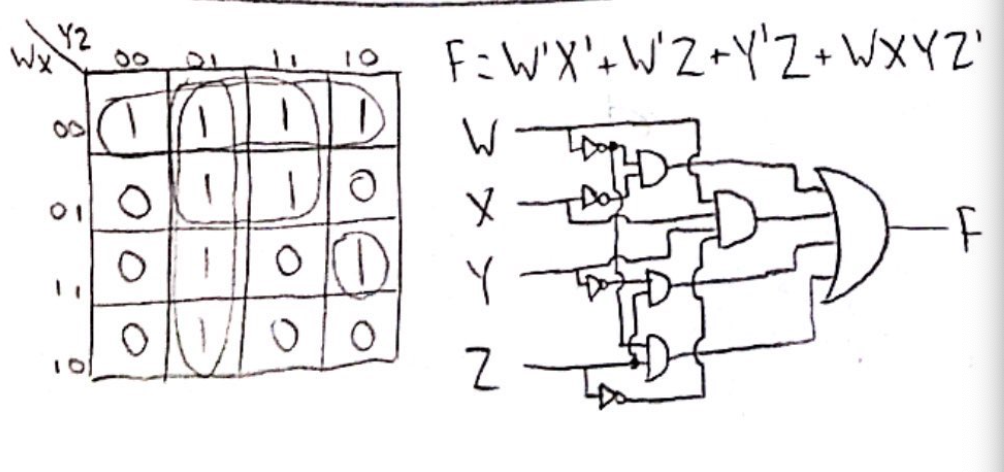 YZ
WX 00 01 11 10
00 1 1 1 1
01 0 1 1 0
11 0 1 0 1
10 0 1 0 0
F=W'X'+W'Z+Y'Z+WXYZ'
W
X
Y
Z
F